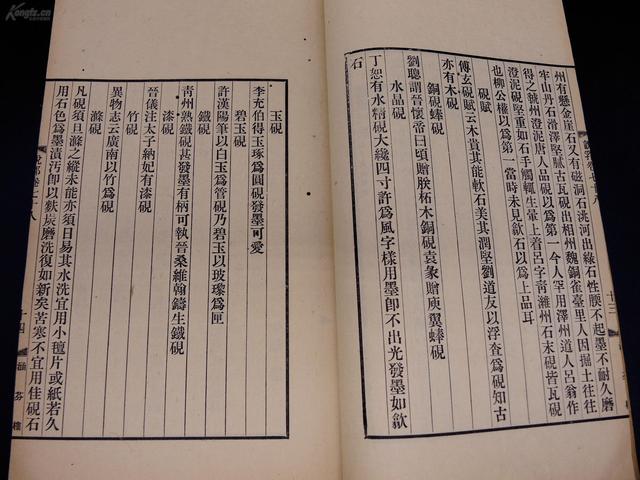 州有懸金崖石又有磁洞石洮河出綠石性腝不起墨不耐久磨
牢山丹石滑澤堅膩古瓦硯出相州魏銅雀臺里人因掘土往往
得之虢州澄泥唐人品硯以爲第一今人罕用澤州道人呂翁作
澄泥硯堅重如石手觸輒生暈上着呂字靑濰州石末硯皆瓦硯
也柳公權以爲第一當時未見歙石以爲上品耳
硯賦
傅玄硯賦云木貴其能軟石美其潤堅劉道友以浮査爲硯知古
亦有木硯
銅硯蜯硯
劉聰謂晉懷帝曰頃贈朕柘木銅硯袁彖贈庾翼蜯硯
水晶硯
丁恕有水精硯大纔四寸許爲風字樣用墨卽不出光發墨如歙
石
玉硯
李充伯得玉琢爲圓硯發墨可愛
碧玉硯
許漢陽筆以白玉爲管硯乃碧玉以玻瓈爲匣
鐵硯
靑州熟鐵硯甚發墨有柄可執晉桑維翰鑄生鐵硯
漆硯
晉儀注太子納妃有漆硯
竹硯
異物志云廣南以竹爲硯
滌硯
凡硯須旦滌之縱未能亦須日易其水洗宜用小氊片或紙若久
用石色爲墨漬汚卽以麩炭磨洗復如新矣苦寒不宜用佳硯石
十三
十四
涵芬樓
Kongfz.cn